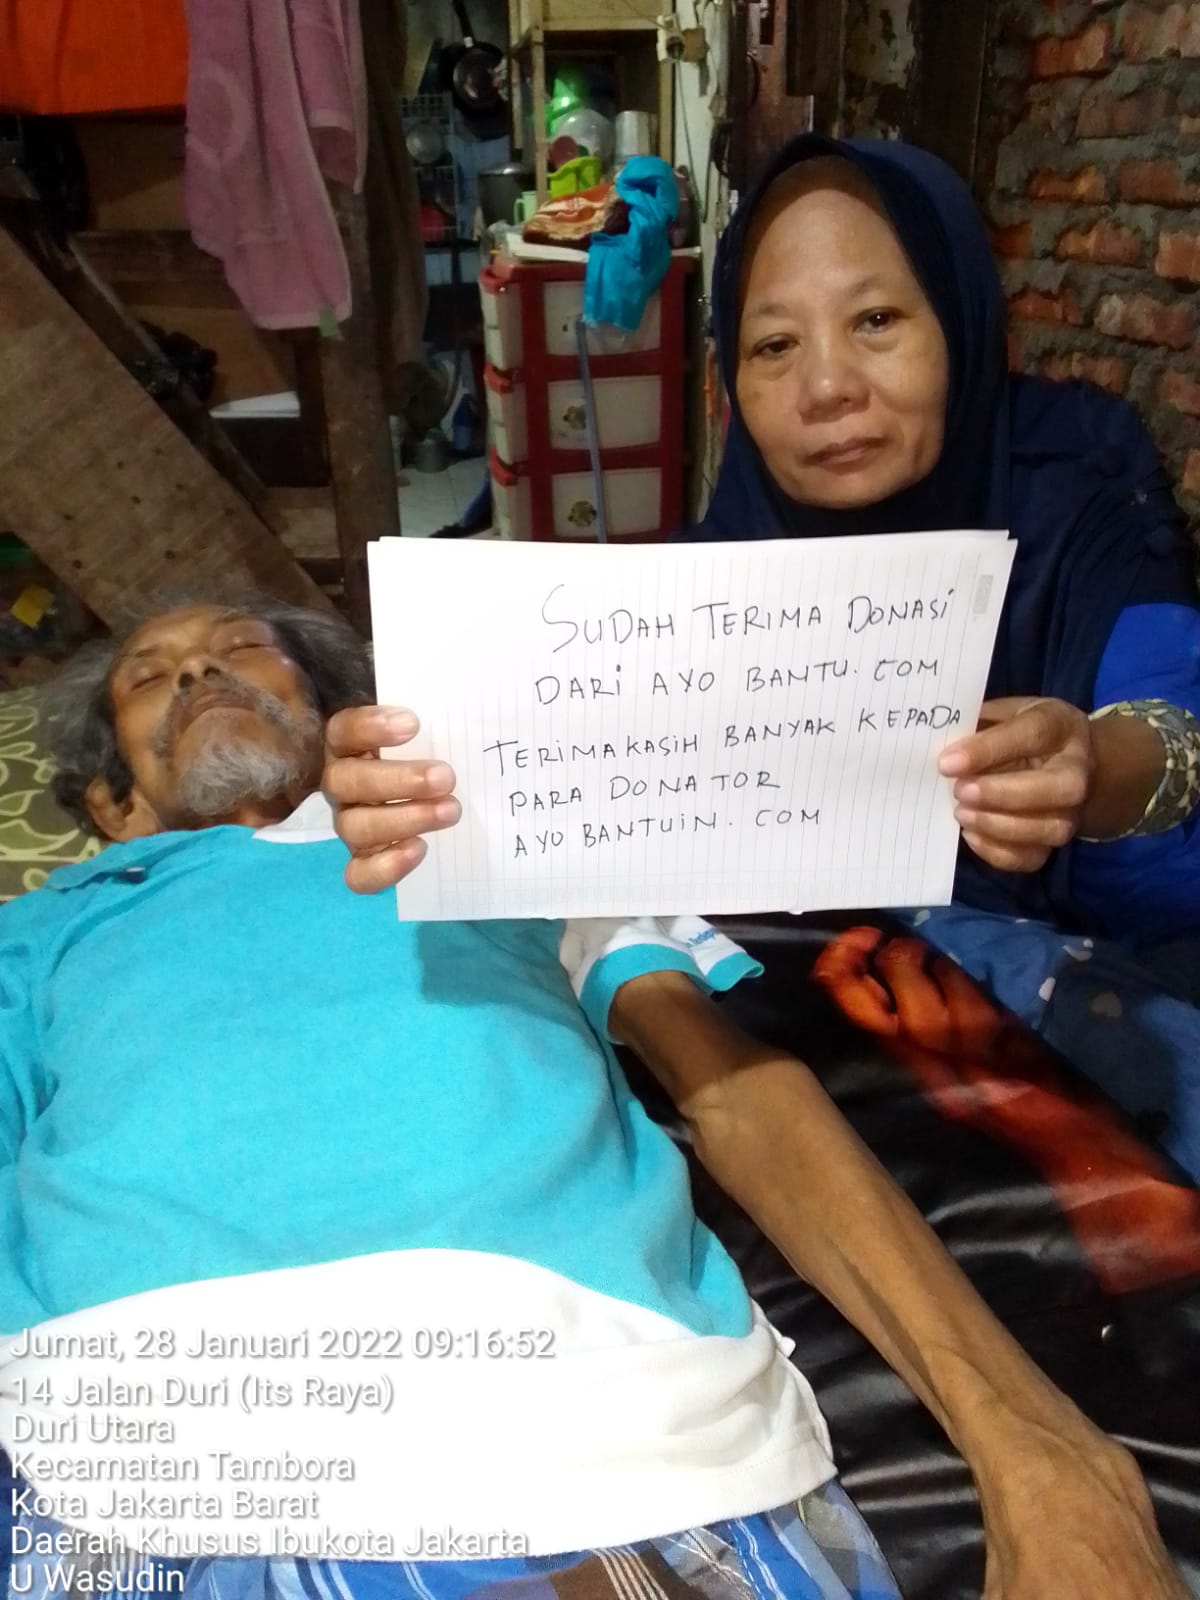 SUDAH TERIMA DONASI
DARI AYO BANTU. COM
TERIMAKASIH BANYAK KEPADA
PARA DONATOR
AYO BANTUIN. COM
Jumat, 28 Januari 2022 09:16:52
14 Jalan Duri (Its Raya)
Duri Utara
Kecamatan Tambora
Kota Jakarta Barat
Daerah Khusus Ibukota Jakarta
U Wasudin